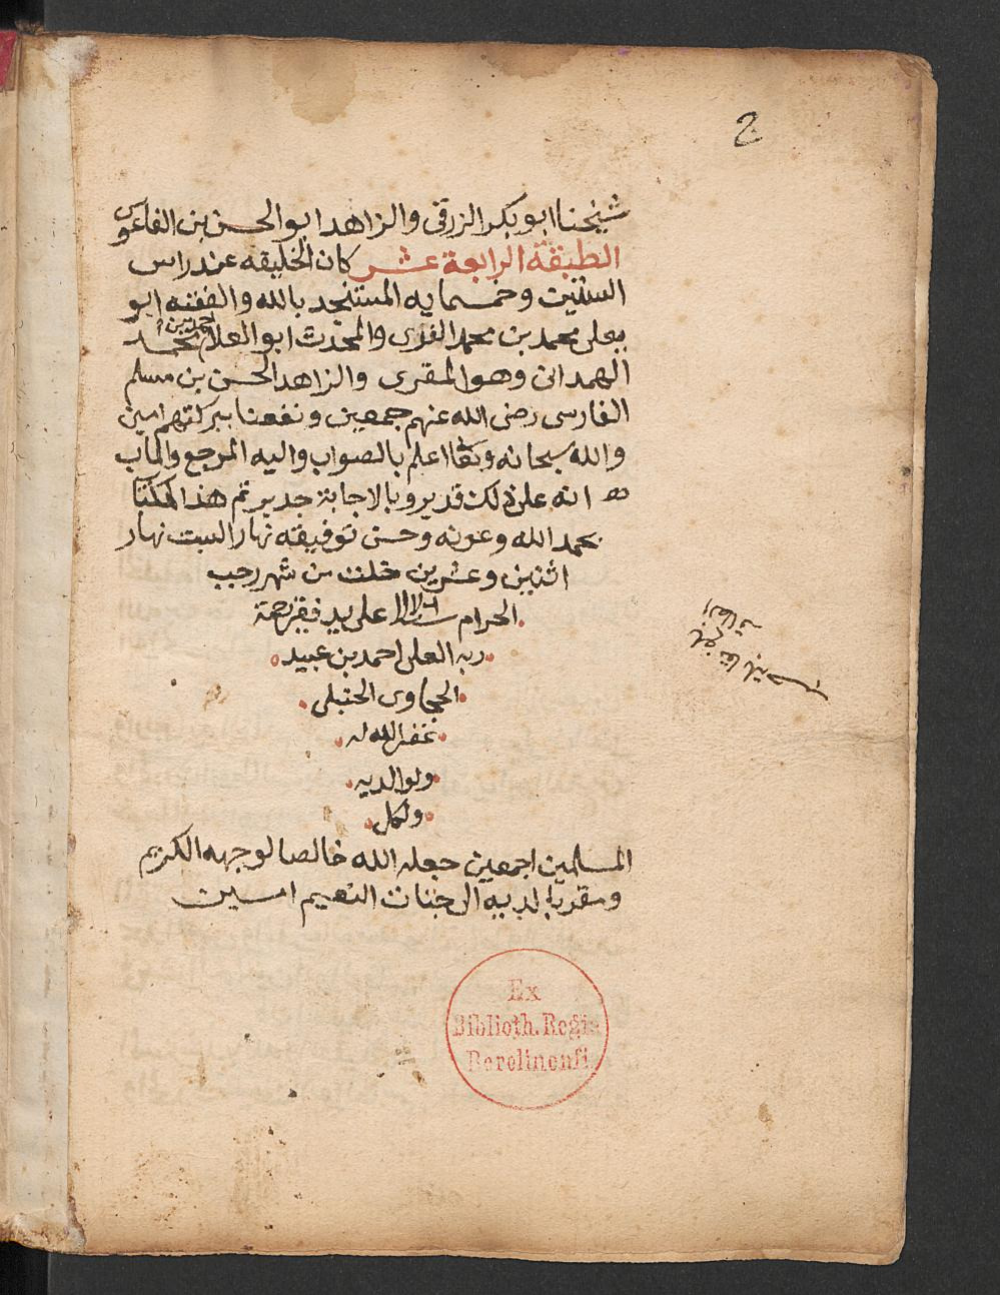 2
شيخنا ابو بكر الزرقى والزاهد ابو الحسن بن الفاعوس
الطبقة الرابعة عشر كان الخليفه عند راس
الستين وخمسمايه المستنجد بالله والفقيه ابو
يعلى محمد بن محمد الفرى والمحدث ابو العلا احمد بن محمد
الهمدانى وهو المقرى والزاهد الحسن بن مسلم
الفارسى رضى الله عنهم جمعين ونفعنا ببركتهم امين
والله سبحانه وتعا اعلم بالصواب واليه المرجع والماب
انه على ذلك قدير وبالاجابة جدير تم هذا الكتا
بحمد الله وعونه وحسن توفيقه نهار السبت نهار
اثنين وعشرين خلت من شهر رجب
الحرام سنة ١١٧٦ على يد فقير رحمة
ربه العلى احمد بن عبيد
الحجاوى الحنبلى
غفر الله له
ولوالديه
ولكل
المسلمين اجمعين جعله الله خالصا لوجهه الكريم
ومقربا لديه الى جنات النعيم امين
Ex
Biblioth. Regia
Berolinensi.